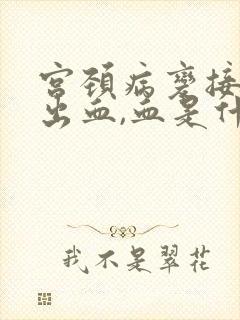 宫颈病变接
出血,血是什
我不是翠花